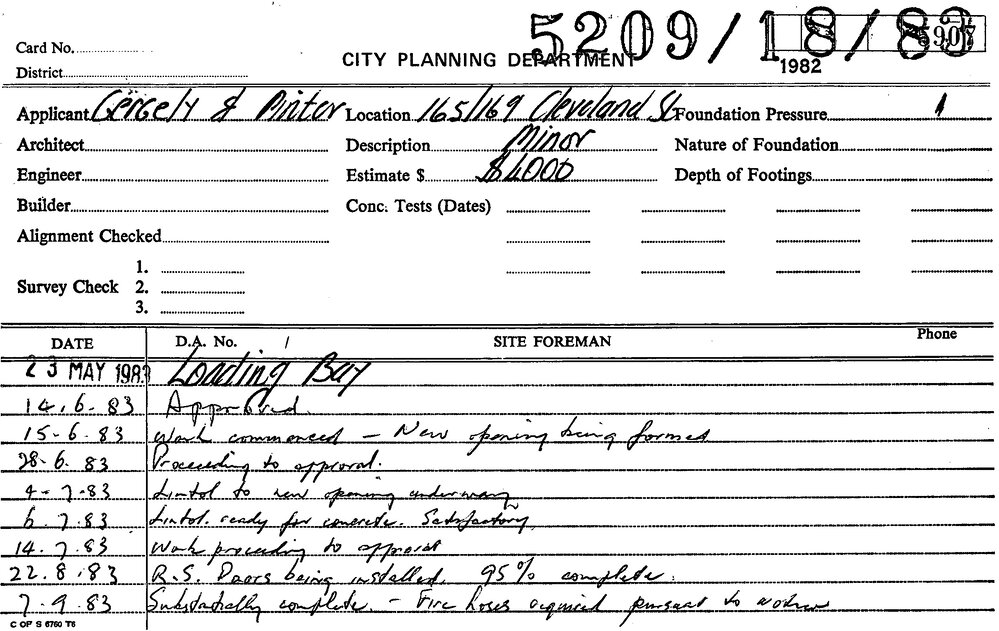 5209/18/83
Card No.
CITY PLANNING DEPARTMENT
1982
District
Applicant Gergely & Pinter Location 165/169 Cleveland St Foundation Pressure 1
Architect Description Minor Nature of Foundation
Engineer Estimate $ $4000 Depth of Footings
Builder Conc. Tests (Dates)
Alignment Checked
1.
Survey Check 2.
3.
DATE D.A. No. / SITE FOREMAN Phone
23 MAY 1983 Loading Bay
14.6.83 Approved.
15-6.83 Work commenced - New opening being formed
28-6.83 Proceeding to approval.
4-7-83 Lintol to new opening underway
6.7.83 Lintol ready for concrete. Satisfactory
14.7.83 Work proceeding to approval
22.8.83 R.S. Doors being installed. 95% complete.
7.9.83 Substantially complete. - Fire hoses required pursuant to
C OF S 6760 T6